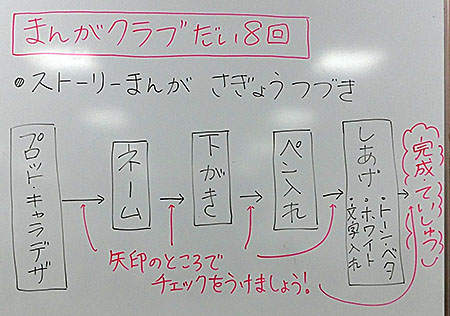 まんがクラブだい8回
●ストーリーまんが さぎょうつづき
プロット・キャラデザ
ネーム
下がき
ペン入れ
しあげ
・トーン・ベタ
・ホワイト
・文字入れ
完成・ていしゅつ
矢印のところで
チェックをうけましょう!